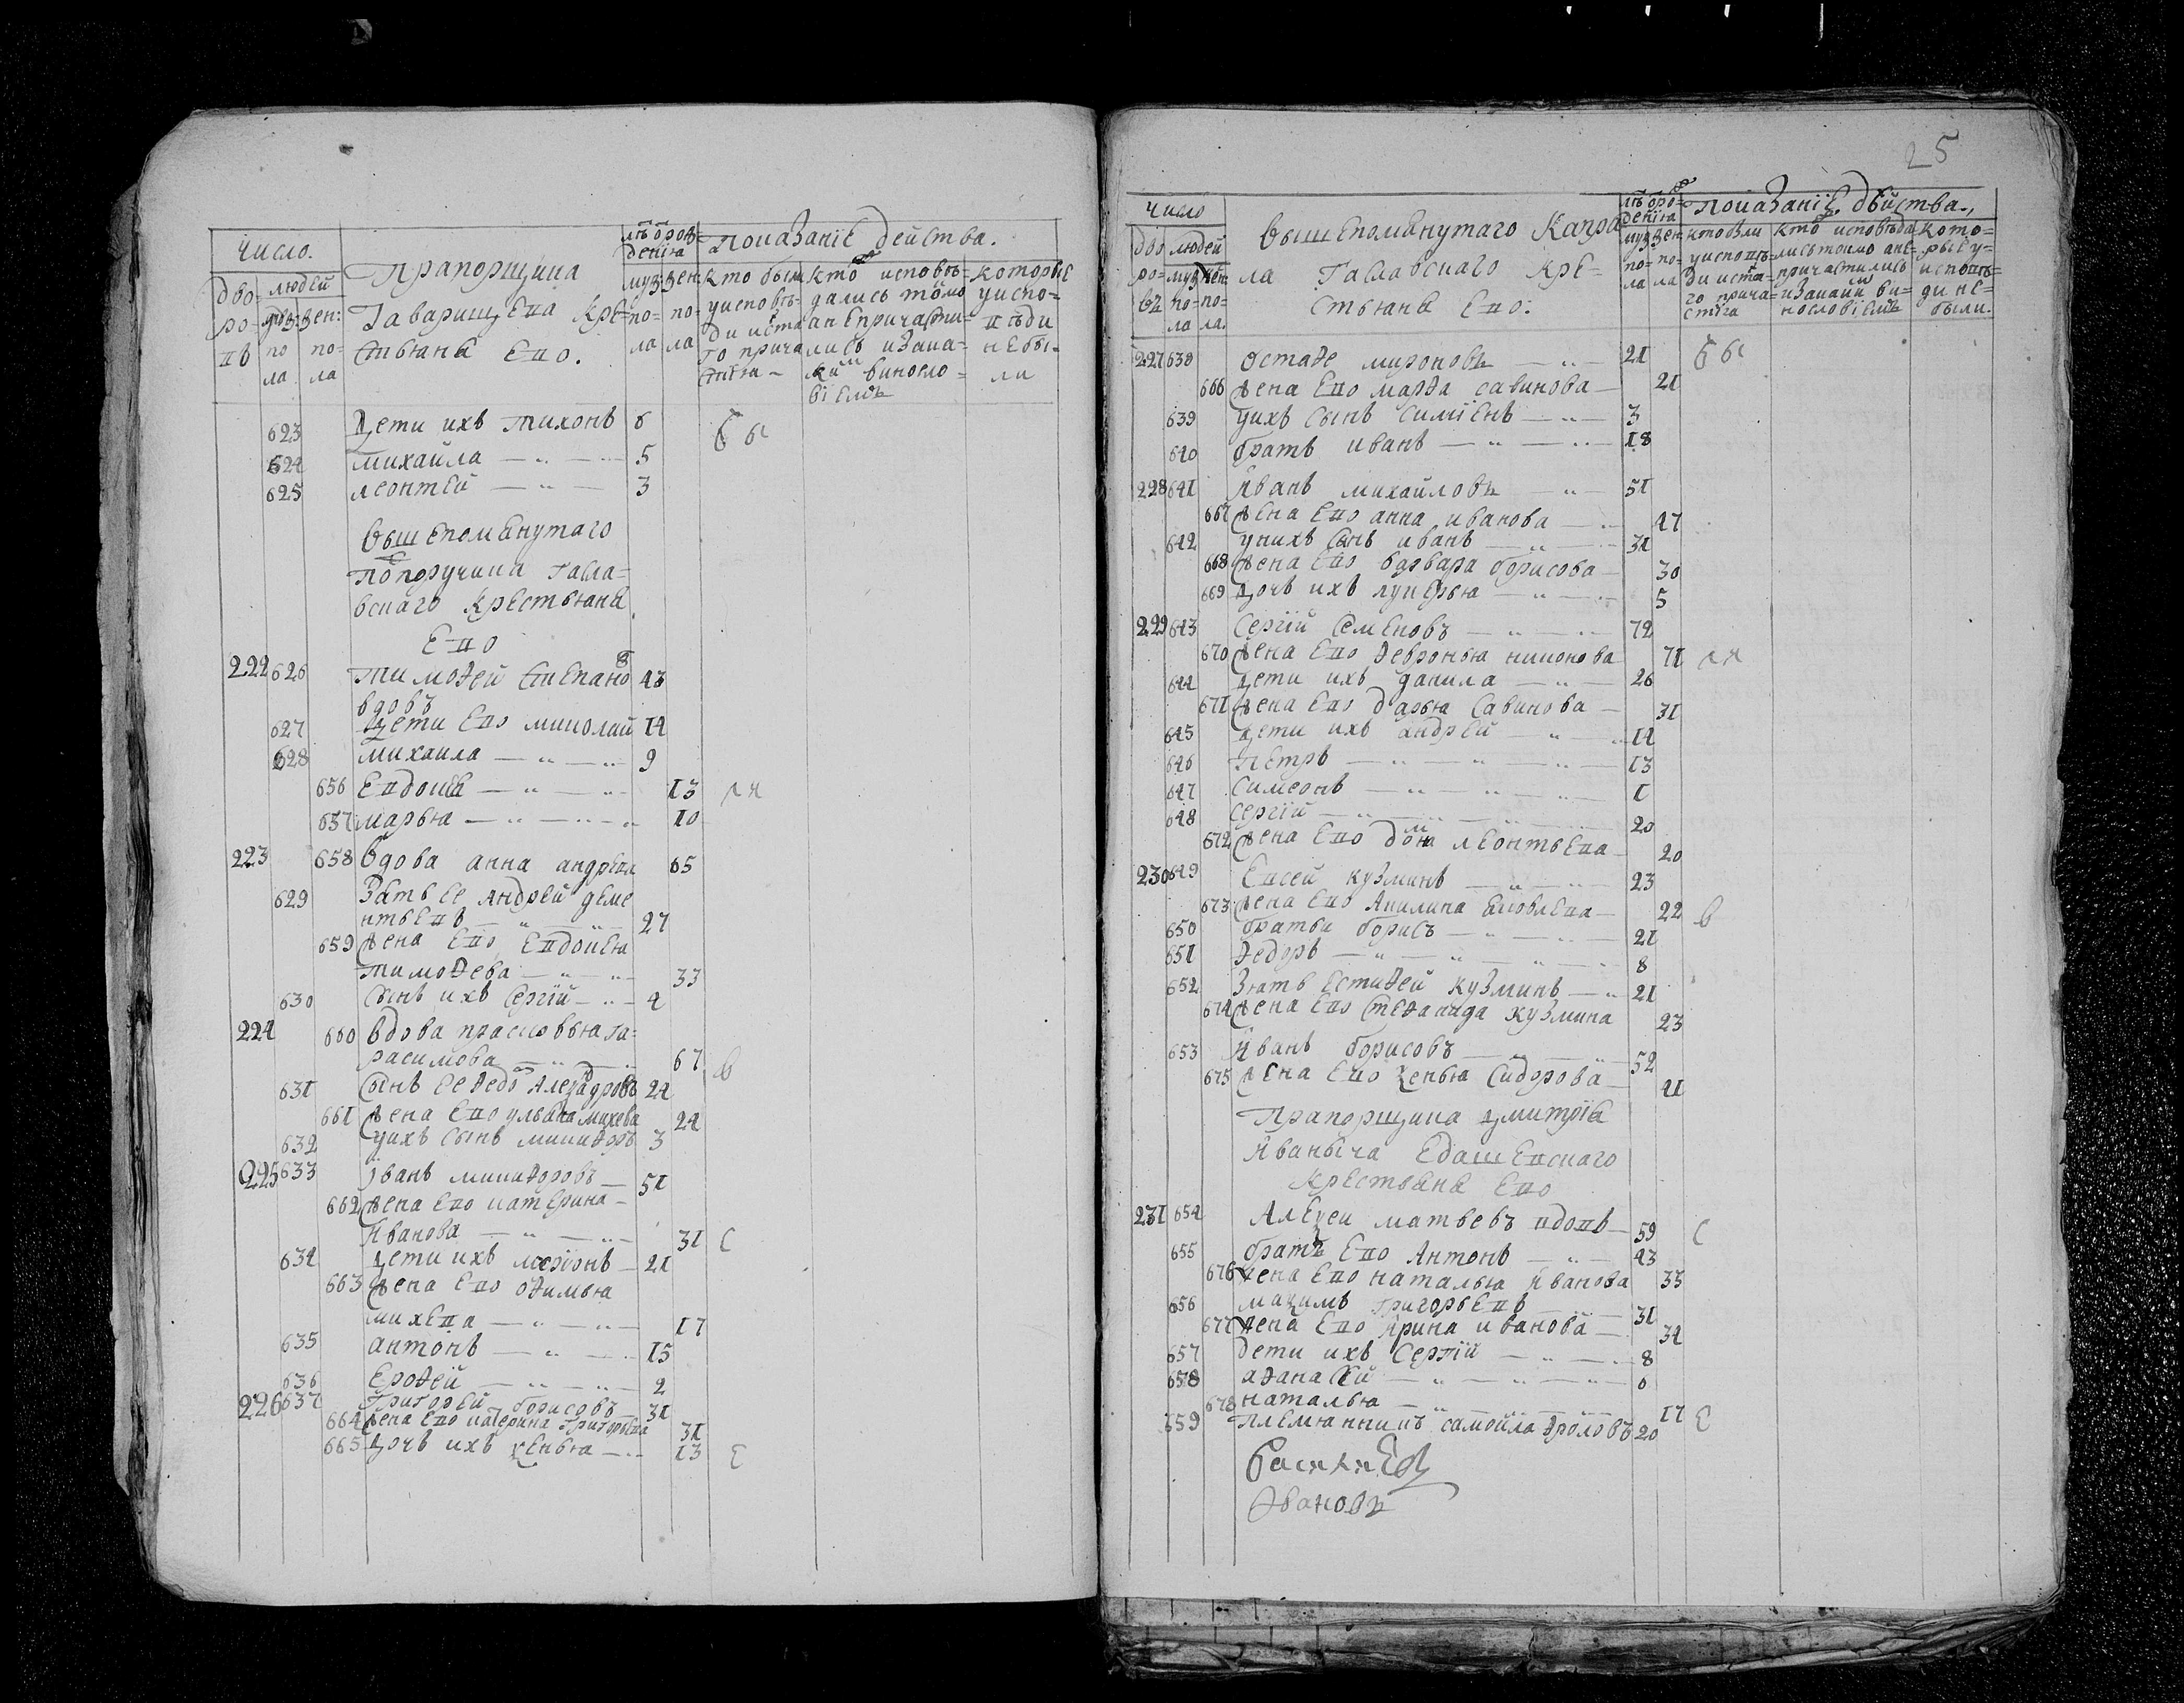 Число.
Прапорщика
Гаварищева кре=
стьяне ево.
лѣ рож=
деніа
показаніе действа.
дво=
ро=
въ
людей
муз
по
ла
жен:
по=
ла
муз
по=
ла
жен
по=
ла
кто были
уисповѣ=
ди иста
го прича
стіа
кто исповѣ=
дались токмо
а непричасти=
лись и зака=
ким виносло=
віемъ
которые
уиспо=
вѣди
небы=
ли
623 Дети ихъ тихонъ 6 бы
624 михайла 5
625 леонтей 3
Вышепомянутаго
попоручика гасла=
вскаго крестьяне
ево
222 626 тимоѳей степанов 43
вдовъ
627 Дети ево миколай 14
628 михаила 9
656 Евдокея 13 ля
657 марья 10
223 658 вдова анна андрева 65
629 Зять ее Андрей деме
нтьевъ 27
659 жена ево Евдокея
тимоѳева 33
630 Сынъ ихъ Сергій 4
224 660 Вдова прасковья га=
расимова 67 в
631 Сынъ ее ѳедо Алеѯадровъ 24
661 жена ево ульяна михева 24
632 уихъ сынъ микиѳоръ 3
225 633 Иванъ микиѳоровъ 51
662 жена ево катерина
Иванова 31 с
634 Дети ихъ 21
663 жена ево оѳимья
михева 17
635 антонъ 15
636 Ероѳей 2
226 637 Григорей борисовъ 31
664 жена ево катерина григорьева 31
665 Дочь ихъ ѯенья 13 е
25
Число
Вышепомянутаго Капра
ла Гаславскаго кре=
стьяне ево:
лѣ рож=
деніа
показаніе действа.
дво
ро=
въ
людей
муз
по=
ла
жен
по=
ла.
муз
по=
ла
жен
по=
ла
кто были
уисповѣ=
ди иста=
го прича=
стіа
кто исповѣда
лись токмо ане=
причастились
изакаким ви=
нословіемъ
кото=
рые у=
исповѣ=
ди не=
были.
227 638 Остаѳе мироновъ 21 бы
666 жена ево марѳа савинова 21
639 уихъ сынъ симіенъ 3
640 братъ иванъ 18
228 641 Иванъ михайловъ 51
667 жена ево анна иванова 47
642 унихъ сынъ иванъ 31
668 жена ево варвара борисова 30
669 дочь ихъ лукерья 5
229 643 Сергій Семеновъ 72
670 жена ево ѳевронья никонова 71 ля
644 Дети ихъ данила 26
671 жена ево дарья Савинова 31
645 Дети ихъ андрей 14
646 Петръ 13
647 Симеонъ 1
648 Сергій 20
672 жена ево домна леонтьева 20
230 649 Евсей кузминъ 23
673 жена ево Акилина яковлева 22 в
650 братьи борисъ 21
651 ѳедоръ 8
652 Зять Естиѳей кузминъ 21
674 жена ево стеѳанида кузмина 23
653 Иванъ борисовъ 52
675 жена ево ѯенья Сидорова 41
Прапорщика дмитрія
Иваныча Едашевскаго
крестьяне ево
231 654 Алеѯеи матвевъ вдовъ 59 с
655 братъ ево Антонъ 43
676 жена ево наталья Иванова 33
656 маѯимъ григорьевъ 31
677 жена ево Ирина иванова 34
657 дети ихъ Сергій 8
658 аѳанасей 6
678 наталья 17
659 племянникъ самойла ѳроловъ 20 е
Ивановъ